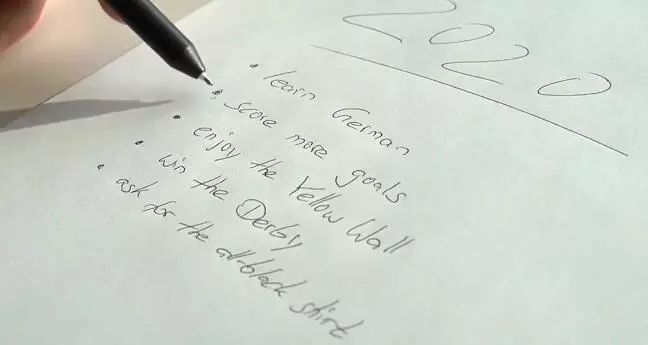 2020
• learn German
• score more goals
• enjoy the Yellow Wall
• win the Derby
• ask for the all-black shirt